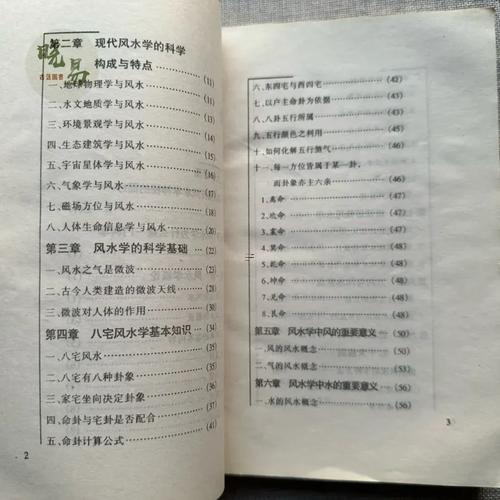 晚易
古籍圖書
第二章 现代风水学的科学
构成与特点 (11)
一、地球物理学与风水 (11)
二、水文地质学与风水
三、环境景观学与风水
四、生态建筑学与风水
五、宇宙星体学与风水
六、气象学与风水 (17)
七、磁场方位与风水 (18)
八、人体生命信息学与风水 (20)
第三章 风水学的科学基础 (22)
一、风水之气是微波 (23)
二、古今人类建造的微波天线 (28)
三、微波对人体的作用 (30)
第四章 八宅风水学基本知识 (34)
一、八宅风水 (35)
二、八宅有八种卦象 (35)
三、家宅坐向决定卦象 (36)
四、命卦与宅卦是否配合
五、命卦计算公式 (41)
2
六、东四宅与西四宅 (42)
七、以户主命卦为依据 (42)
八、八卦五行所属 (44)
九、五行颜色之利用 (44)
十、如何化解五行煞气 (46)
十一、每一方位皆属于某一卦,
而卦象亦主六亲 (46)
1、离命 (47)
2、坎命 (47)
3、震命 (47)
4、巽命 (48)
5、乾命 (48)
6、坤命 (48)
7、兑命 (48)
8、艮命 (48)
第五章 风水学中风的重要意义 (50)
一、风的风水概念 (50)
二、气的风水概念 (51)
第六章 风水学中水的重要意义 (56)
一、水的风水概念 (56)
3